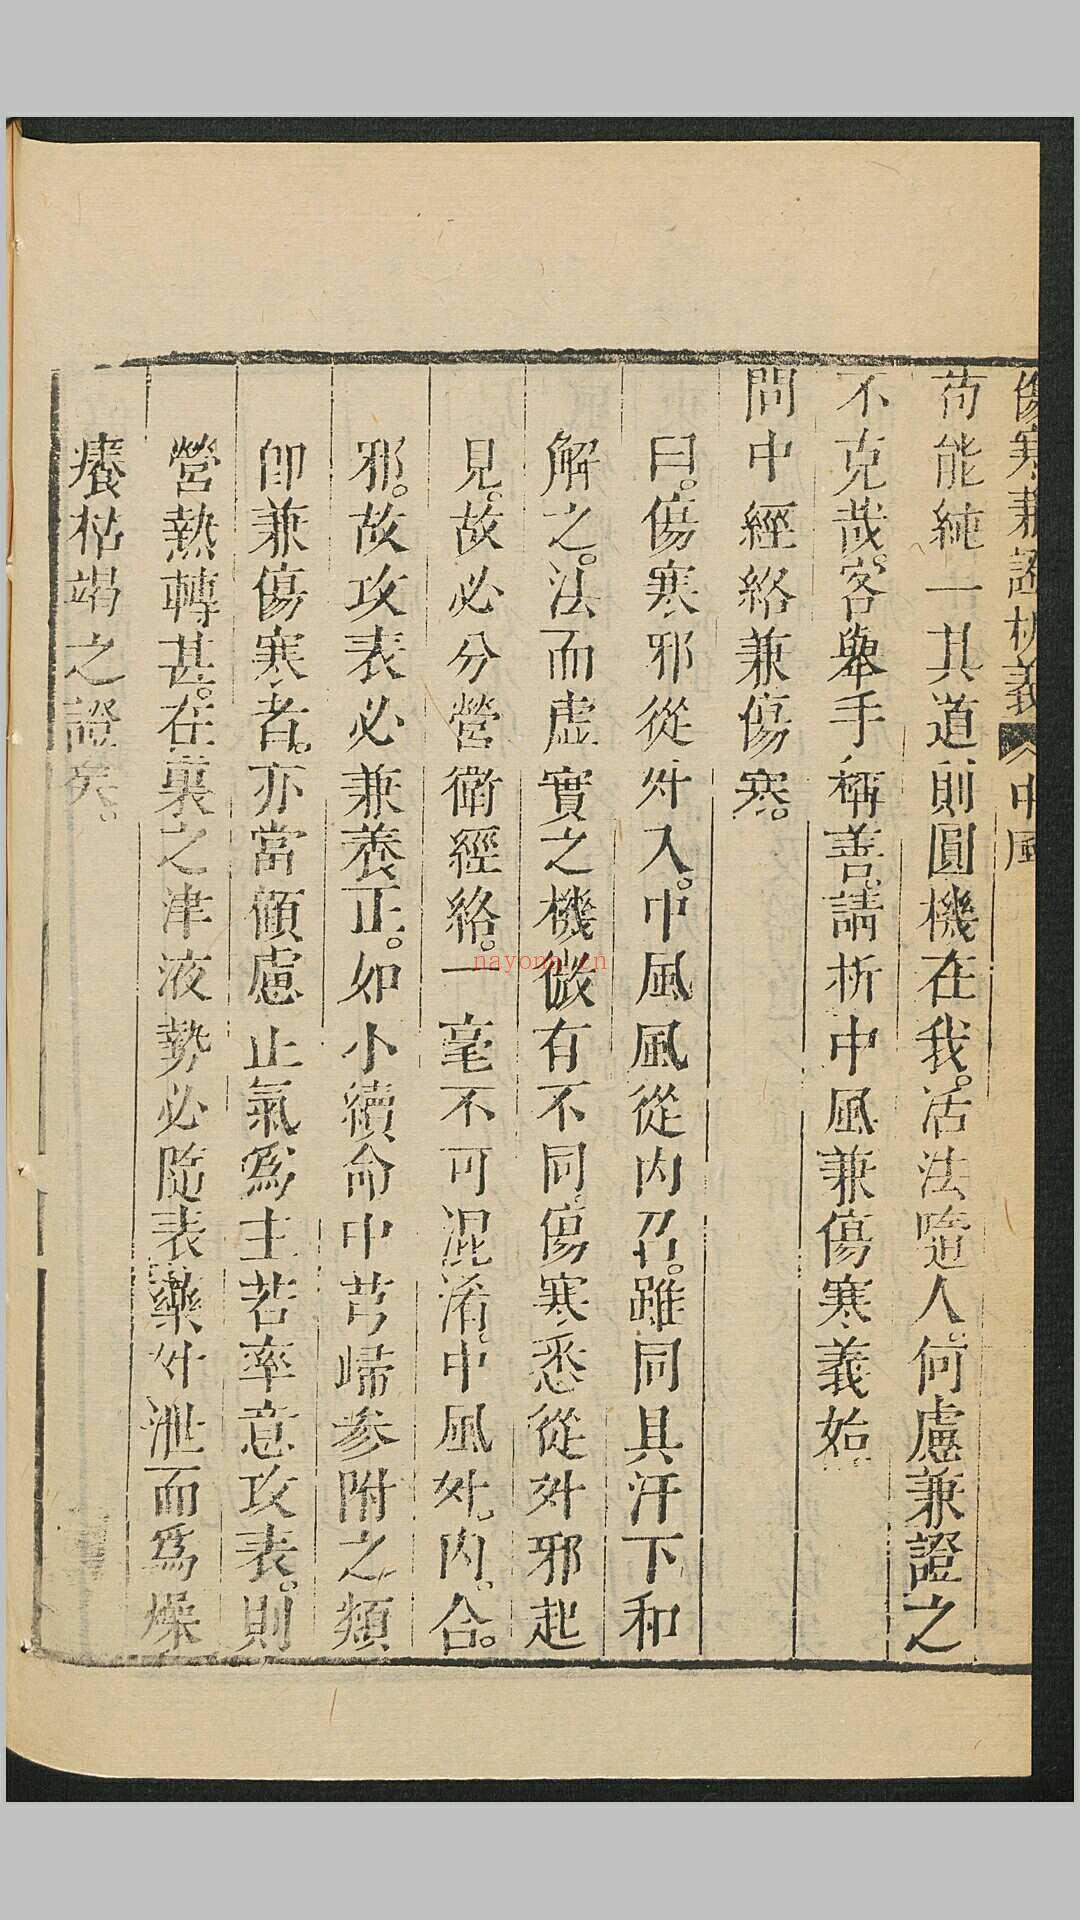 傷寒兼證析義　中風
苟能純一其道則圓機在我。活法隨人。何慮兼證之
不克哉。客舉手稱善。請析中風兼傷寒義始
問中經絡兼傷寒。
曰。傷寒邪從外入。中風風從內召。雖同具汗下和
解之。法而虛實之機微有不同。傷寒悉從外邪起
見。故必分營衛經絡。一毫不可混淆。中風外。內。合。
邪。故攻表必兼養正。如小續命中芎歸參附之類
卽兼傷寒者。亦當顧慮正氣爲主若率意攻表。則
營熱轉甚。在裏之津液勢必隨表藥外泄而爲燥
癢枯竭之證矣。
nayona.cn